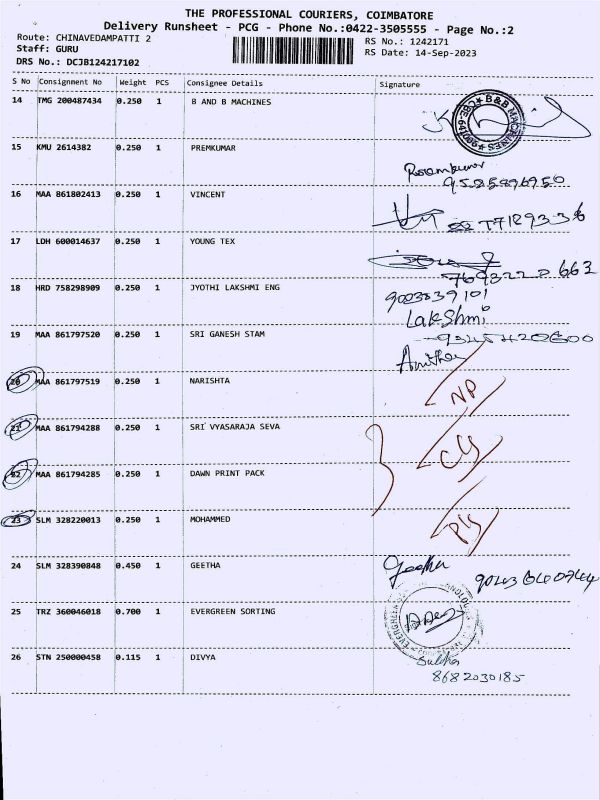 THE PROFESSIONAL COURIERS, COIMBATORE
Delivery Runsheet - PCG - Phone No.:0422-3505555 - Page No.:2
Route: CHINAVEDAMPATTI 2
RS No.: 1242171
Staff: GURU
RS Date: 14-Sep-2023
DRS No.: DCJB124217102
S No Consignment No Weight PCS Consignee Details Signature
14 TMG 200487434 0.250 1 B AND B MACHINES
B&B MACHINES
15 KMU 2614382 0.250 1 PREMKUMAR
Premkumar
9585896950
16 MAA 861802413 0.250 1 VINCENT
17 LDH 600014637 0.250 1 YOUNG TEX
18 HRD 758298909 0.250 1 JYOTHI LAKSHMI ENG
Lakshmi
19 MAA 861797520 0.250 1 SRI GANESH STAM
Anitha
20 MAA 861797519 0.250 1 NARISHTA
NP
21 MAA 861794288 0.250 1 SRI VYASARAJA SEVA
22 MAA 861794285 0.250 1 DAWN PRINT PACK
3
23 SLM 328220013 0.250 1 MOHAMMED
24 SLM 328390848 0.450 1 GEETHA
Geetha
25 TRZ 360046018 0.700 1 EVERGREEN SORTING
26 STN 250000458 0.115 1 DIVYA
8682030185